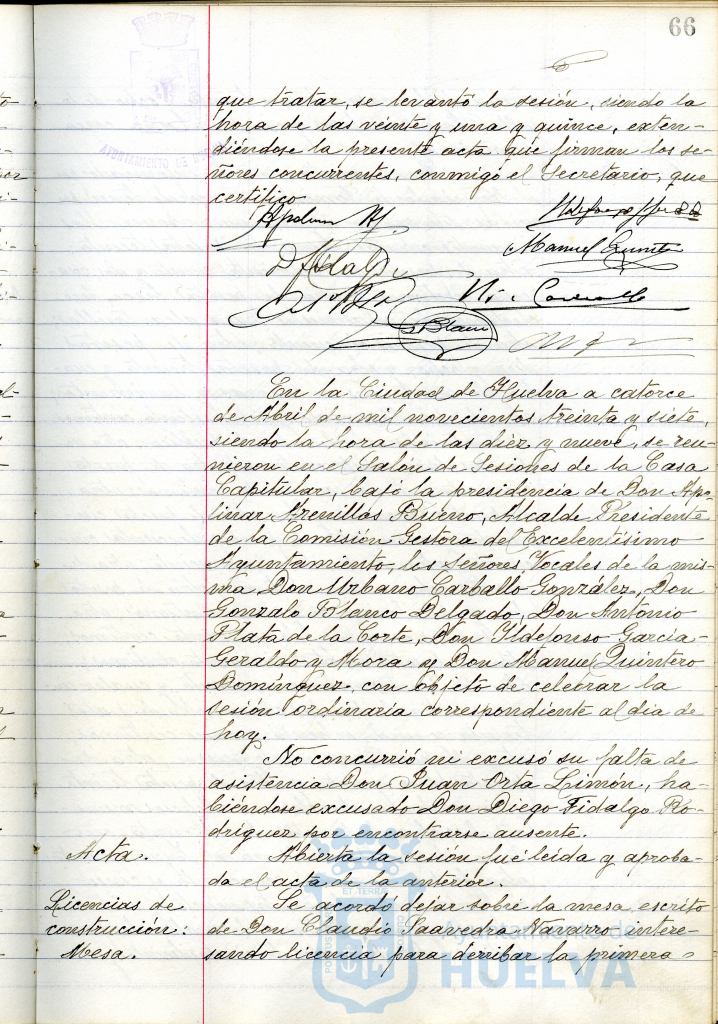 66
que tratar, se levantó la sesión, siendo la
hora de las veinte y una y quince, exten-
diéndose la presente acta que firman los se-
ñores concurrentes, conmigo el Secretario, que
certifico.
Manuel Quintero
D. Fidalgo
Blanco
En la Ciudad de Huelva a catorce
de Abril de mil novecientos treinta y siete,
siendo la hora de las diez y nueve, se reu-
nieron en el Salón de Sesiones de la Casa
Capitular, bajo la presidencia de Don Apo-
linar Arenillas Bueno, Alcalde Presidente
de la Comisión Gestora del Excelentísimo
Ayuntamiento, los señores Vocales de la mis-
ma Don Urbano Carballo González, Don
Gonzalo Blanco Delgado, Don Antonio
Plata de la Corte, Don Ildefonso Garcia-
Geraldo y Mora y Don Manuel Quintero
Domínguez, con objeto de celebrar la
sesión ordinaria correspondiente al dia de
hoy.
No concurrió ni excusó su falta de
asistencia Don Juan Orta Limón, ha-
biéndose excusado Don Diego Fidalgo Ro-
dríguez por encontrarse ausente.
Acta.
Abierta la sesión fué leida y aproba-
da el acta de la anterior.
Licencias de
construcción:
Mesa.
Se acordó dejar sobre la mesa, escrito
de Don Claudio Saavedra Navarro intere-
sando licencia para derribar la primera
Ayuntamiento de
HUELVA